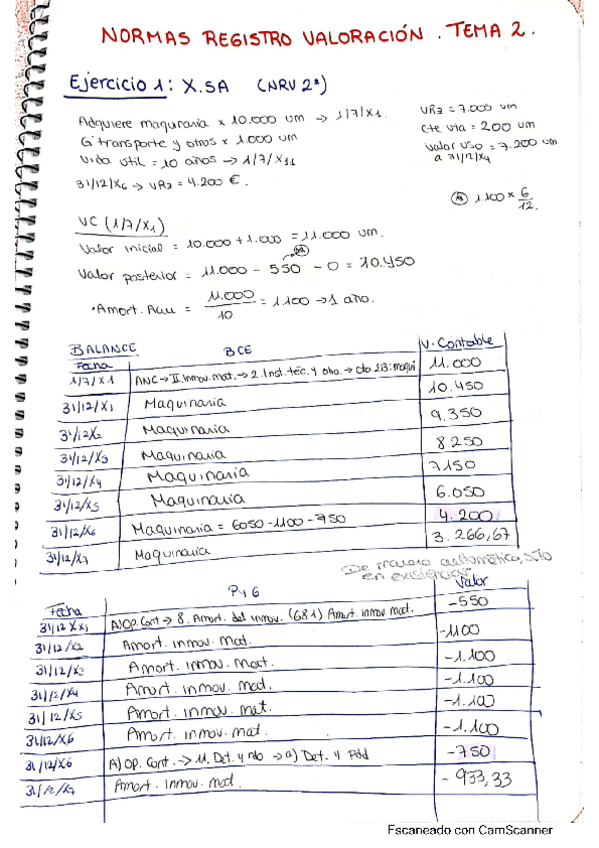 NORMAS REGISTRO VALORACIÓN. TEMA 2.
Ejercicio 1: X.SA (NRV 2ª)
Adquiere maquinaria x 10.000 um → 1/7/X1.
G transporte y otros x 1.000 um
Vida útil = 10 años → 1/7/X11
31/12/X6 → VR2 = 4.200 €.
VR2 = 7.000 um
Cte vta = 200 um
Valor uso = 7.200 um
a 31/12/X4
1.100 x 6/12.
VC (1/7/X1)
Valor inicial = 10.000 + 1.000 = 11.000 um.
Valor posterior = 11.000 - 550 - 0 = 10.450
• Amort. Acu = 11.000/10 = 1.100 → 1 año.
BALANCE
Fecha BCE V. Contable
1/7/X1 ANC → II. Inmov. mat. → 2. Inst. téc. y otro. → cta 213: maqui 11.000
31/12/X1 Maquinaria 10.450
31/12/X2 Maquinaria 9.350
31/12/X3 Maquinaria 8250
31/12/X4 Maquinaria 7150
31/12/X5 Maquinaria 6.050
31/12/X6 Maquinaria = 6050 - 1100 - 750 4.200
31/12/X7 Maquinaria 3.266,67
De manera automática, sólo
en existencias
Fecha P y G Valor
31/12/X1 A) Op. Cont → 8. Amort. del inmov. (681) Amort. inmov mat. -550
31/12/X2 Amort. inmov. mat. -1100
31/12/X3 Amort. inmov. mat. -1.100
31/12/X4 Amort. inmov. mat. -1.100
31/12/X5 Amort. inmov. mat. -1.100
31/12/X6 Amort. inmov. mat. -1.100
31/12/X6 A) Op. Cont. → 11. Det. y → a) Det. y Pdd -750
31/12/X7 Amort. inmov. mat. -933,33
Escaneado con CamScanner